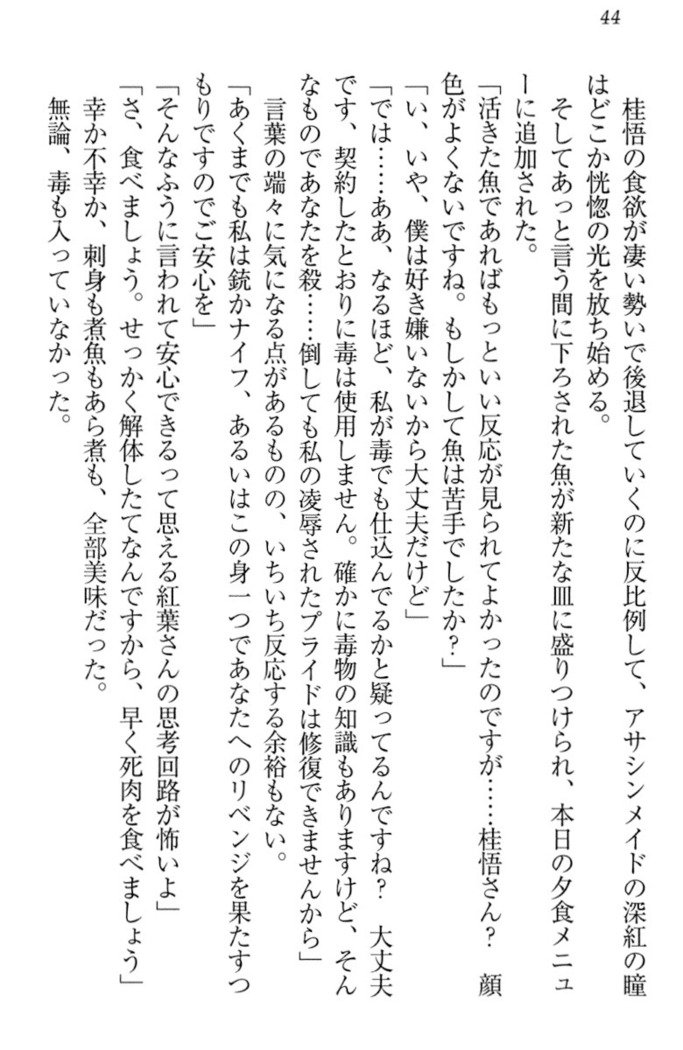 44
桂悟の食欲が凄い勢いで後退していくのに反比例して、アサシンメイドの深紅の瞳
はどこか恍惚の光を放ち始める。
そしてあっと言う間に下ろされた魚が新たな皿に盛りつけられ、本日の夕食メニュ
ーに追加された。
「活きた魚であればもっといい反応が見られてよかったのですが……桂悟さん？　顔
色がよくないですね。もしかして魚は苦手でしたか？」
「い、いや、僕は好き嫌いないから大丈夫だけど」
「では……ああ、なるほど、私が毒でも仕込んでるかと疑ってるんですね？　大丈夫
です、契約したとおりに毒は使用しません。確かに毒物の知識もありますけど、そん
なものであなたを殺……倒しても私の凌辱されたプライドは修復できませんから」
言葉の端々に気になる点があるものの、いちいち反応する余裕もない。
「あくまでも私は銃かナイフ、あるいはこの身一つであなたへのリベンジを果たすつ
もりですのでご安心を」
「そんなふうに言われて安心できるって思える紅葉さんの思考回路が怖いよ」
「さ、食べましょう。せっかく解体したてなんですから、早く死肉を食べましょう」
幸か不幸か、刺身も煮魚もあら煮も、全部美味だった。
無論、毒も入っていなかった。